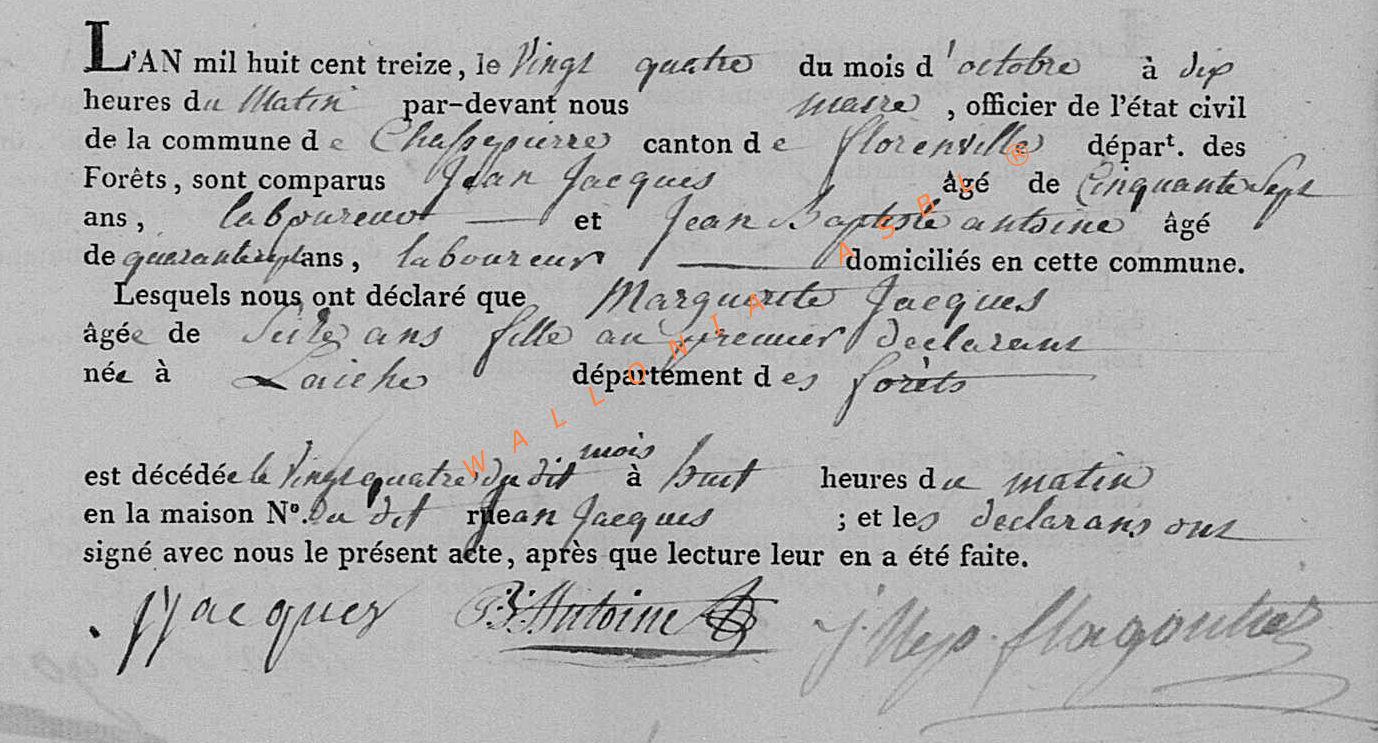 L'AN mil huit cent treize, le Vingt quatre du mois d'octobre à dix
heures du Matin par-devant nous maire, officier de l'état civil
de la commune de Chassepierre canton de florenville dépar<sup>t</sup>. des
Forêts, sont comparus Jean Jacques âgé de Cinquante Sept
ans, laboureur et Jean Baptiste antoine âgé
de quarante sept ans, laboureur domiciliés en cette commune.
Lesquels nous ont déclaré que Marguerite Jacques
âgée de ans fille au premier declarant
née à Laiche département des forêts
est décédée le Vingt quatre du dit mois à huit heures du matin
en la maison Nº. Du dit jean Jacques ; et les declarans ont
signé avec nous le présent acte, après que lecture leur en a été faite.
JJacques J:B:Antoine
WALLONIA ASBL ®